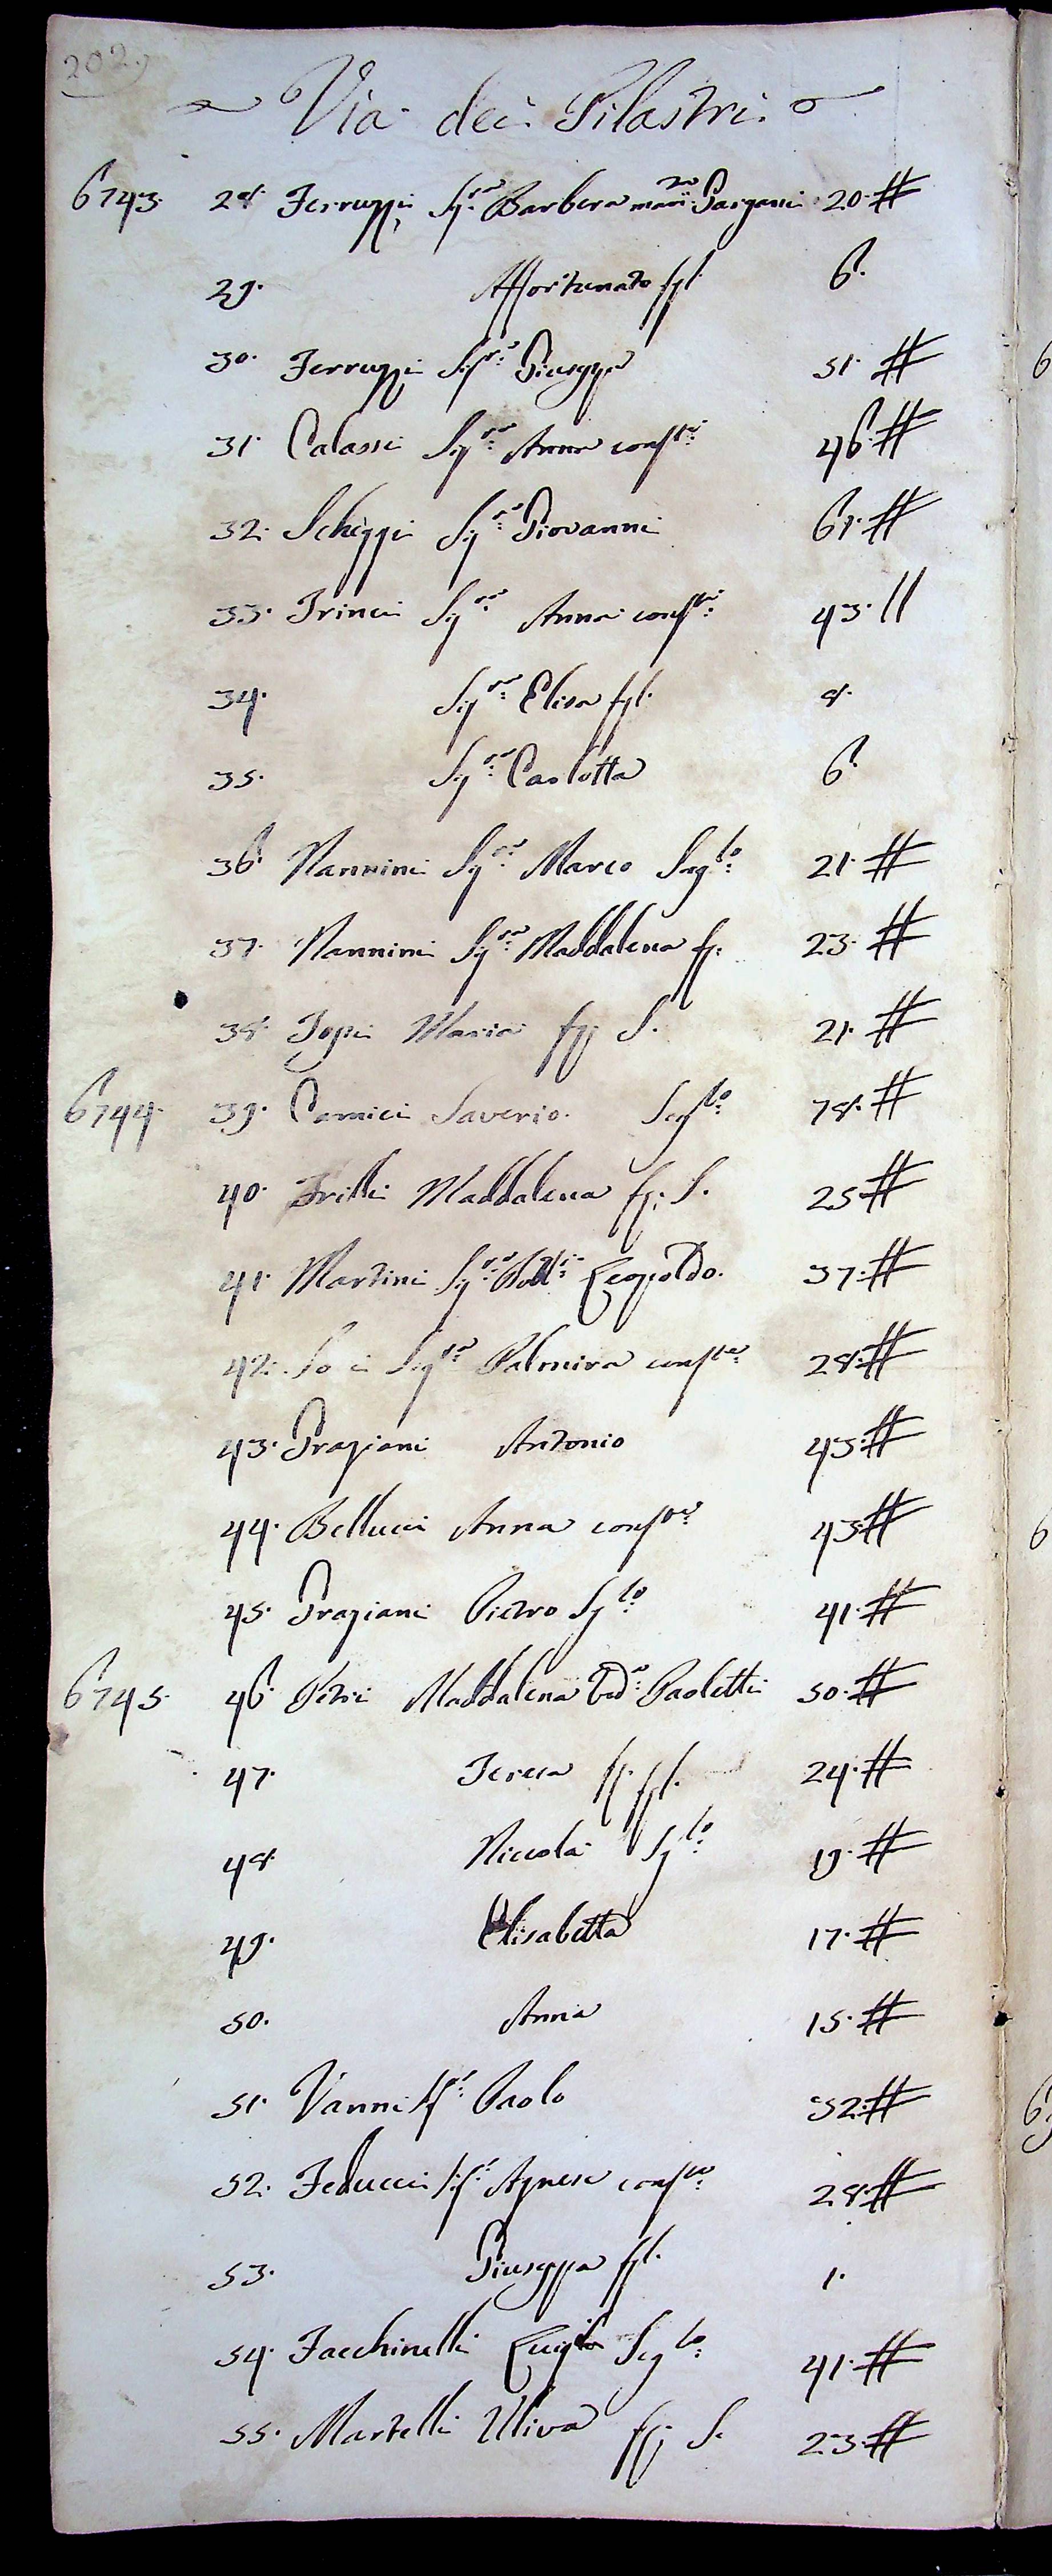 202.
Via dei Pilastri
6743. 28. Ferruzzi Sig.ra Barbera 20 #
29. Affortunato figl. 6.
30. Ferruzzi Sig.re Giuseppe 51 #
31. Calassi Sig.ra Anna conste. 46 #
32. Scheggi Sig.re Giovanni 61 #
33. Trinci Sig.ra Anna conste. 43 //
34. Sig.ra Elisa figl. 8.
35. Sig.ra Carlotta 6.
36. Nannini Sig.re Marco Sceglo. 21 #
37. Nannini Sig.ra Maddalena f. 23 #
38. Maria f. S. 21 #
6744. 39. Camici Saverio. Sceglo. 78 #
40. Frilli Maddalena f. S. 25 #
41. Martini Sig.re Dott.re Leopoldo. 37 #
42. Sig.ra Palmira conste. 28 #
43. Graziani Antonio 43 #
44. Bellucci Anna conste. 43 #
45. Graziani Pietro Sglo. 41 #
6745. 46. Petri Maddalena Ved.a Paoletti 50 #
47. Teresa f. figl. 24 #
48. Niccola Sglo. 19 #
49. Elisabetta 17 #
50. Anna 15 #
51. Vanni Sig.re Paolo 32 #
52. Feducci Sig.ra Agnese conste. 28 #
53. Giuseppa figl. 1.
54. Facchinelli Luigi Sceglo. 41 #
55. Martelli Uliva f. S. 23 #